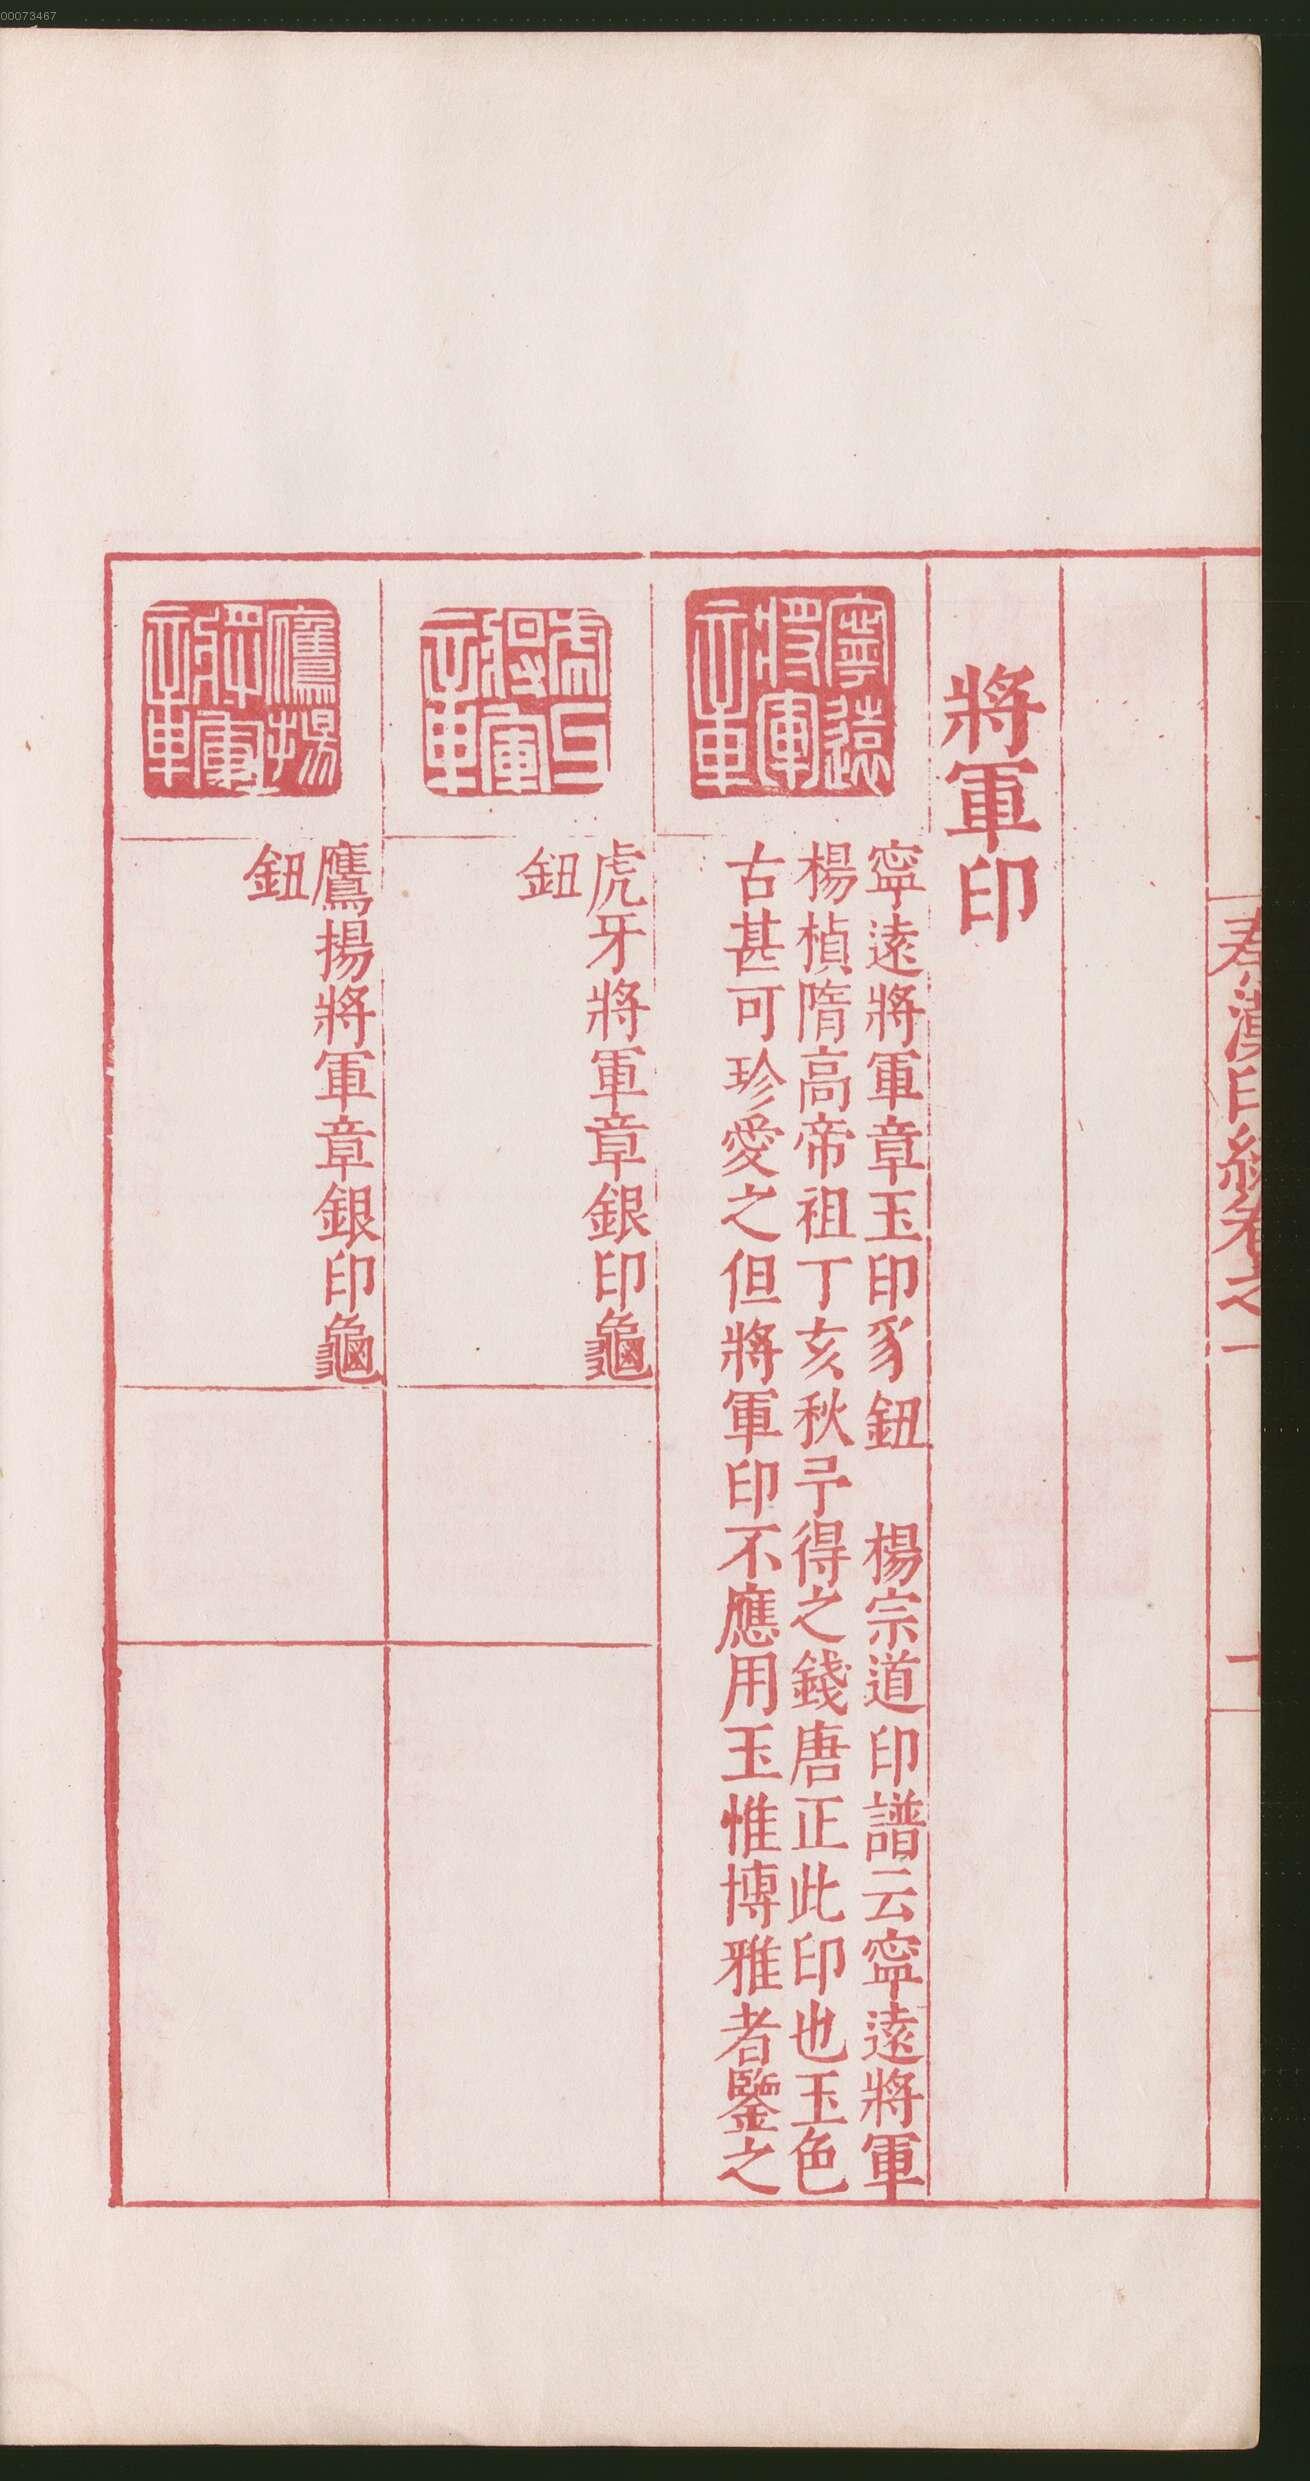 00073467
秦漢印統卷之一
將軍印
寧遠將軍章
寧遠將軍章玉印豸鈕　楊宗道印譜云寧遠將軍
楊楨隋高帝祖丁亥秋予得之錢唐正此印也玉色
古甚可珍愛之但將軍印不應用玉惟博雅者鑒之
虎牙將軍章
虎牙將軍章銀印龜
鈕
鷹揚將軍章
鷹揚將軍章銀印龜
鈕